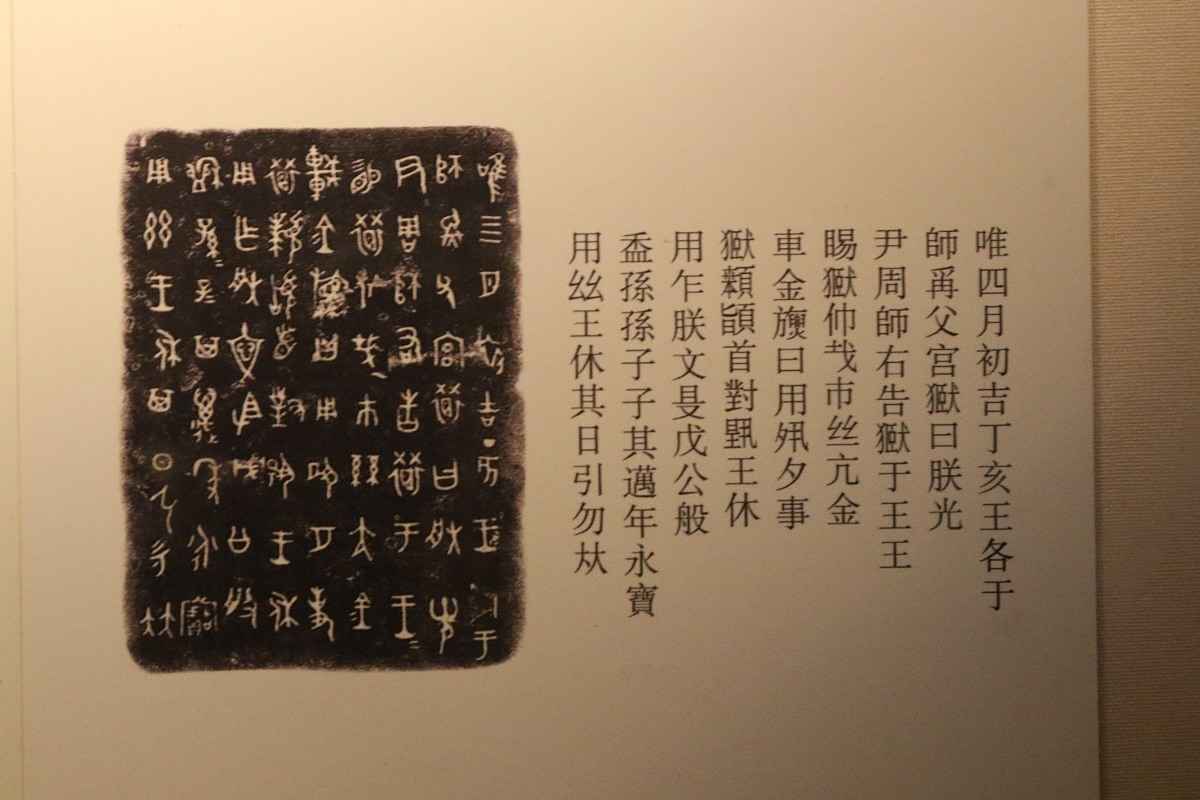 唯四月初吉丁亥王各于
師爯父宮獄曰朕光
尹周師右告獄于王王
賜獄仲𢦏巿丝亢金
車金旟曰用夙夕事
獄䫉𩒨首對揚王休
用乍朕文㝵戊公般
盉孫孫子子其邁年永寶
用𢆶王休其日引勿㚘